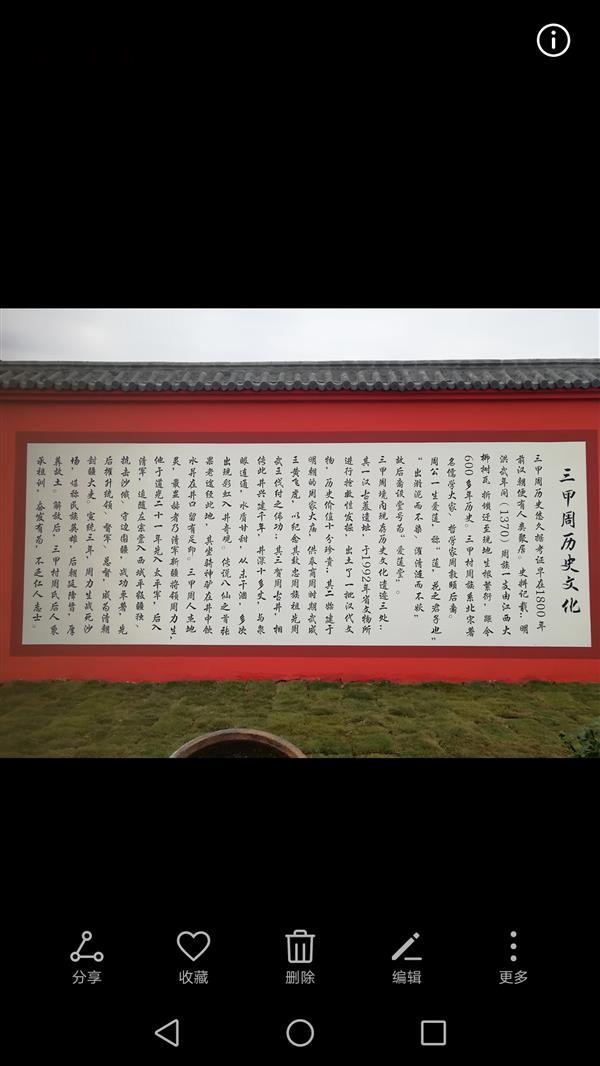 三甲周历史文化
三甲周历史悠久据考证早在1800年
前汉朝便有人类聚居。史料记载：明
洪武年间（1370）周族一支由江西大
柳树瓦折坝迁至现地生根繁衍，距今
600多年历史。三甲村周族系北宋著
名儒学大家、哲学家周敦颐后裔。
周公一生爱莲，称“莲，花之君子也”
“出淤泥而不染，濯清涟而不妖”
故后裔设堂号为“爱莲堂”。
三甲周境内现存历史文化遗迹三处：
其一汉古墓遗址，于1992年省文物所
进行抢救性发掘，出土了一批汉代文
物，历史价值十分珍贵；其二始建于
明朝的周家大庙，供奉商周时期武成
王黄飞虎，以纪念其教忠周族祖先周
武王伐纣之伟功；其三为周古井，相
传此井兴建千年，井深十多丈，与泉
眼连通，水质甘甜，从未干涸，多次
出现彩虹入井奇观。传说八仙之首张
果老途经此地，其坐骑神驴在井中饮
水并在井口留有足印。三甲周人杰地
灵，最显赫者乃清军新疆将领周力生，
他于道光二十一年先入太平军，后入
清军，追随左宗棠入西域平叛疆独、
抗击沙俄、守边固疆，战功卓著，先
后擢升统领、督军、总督，成为清朝
封疆大吏。宣统三年，周力生战死沙
场，堪称民族英雄，后朝廷降晋，厚
葬故土。解放后，三甲村周氏后人秉
承祖训，奋发有为，不乏仁人志士。
分享
收藏
删除
编辑
更多